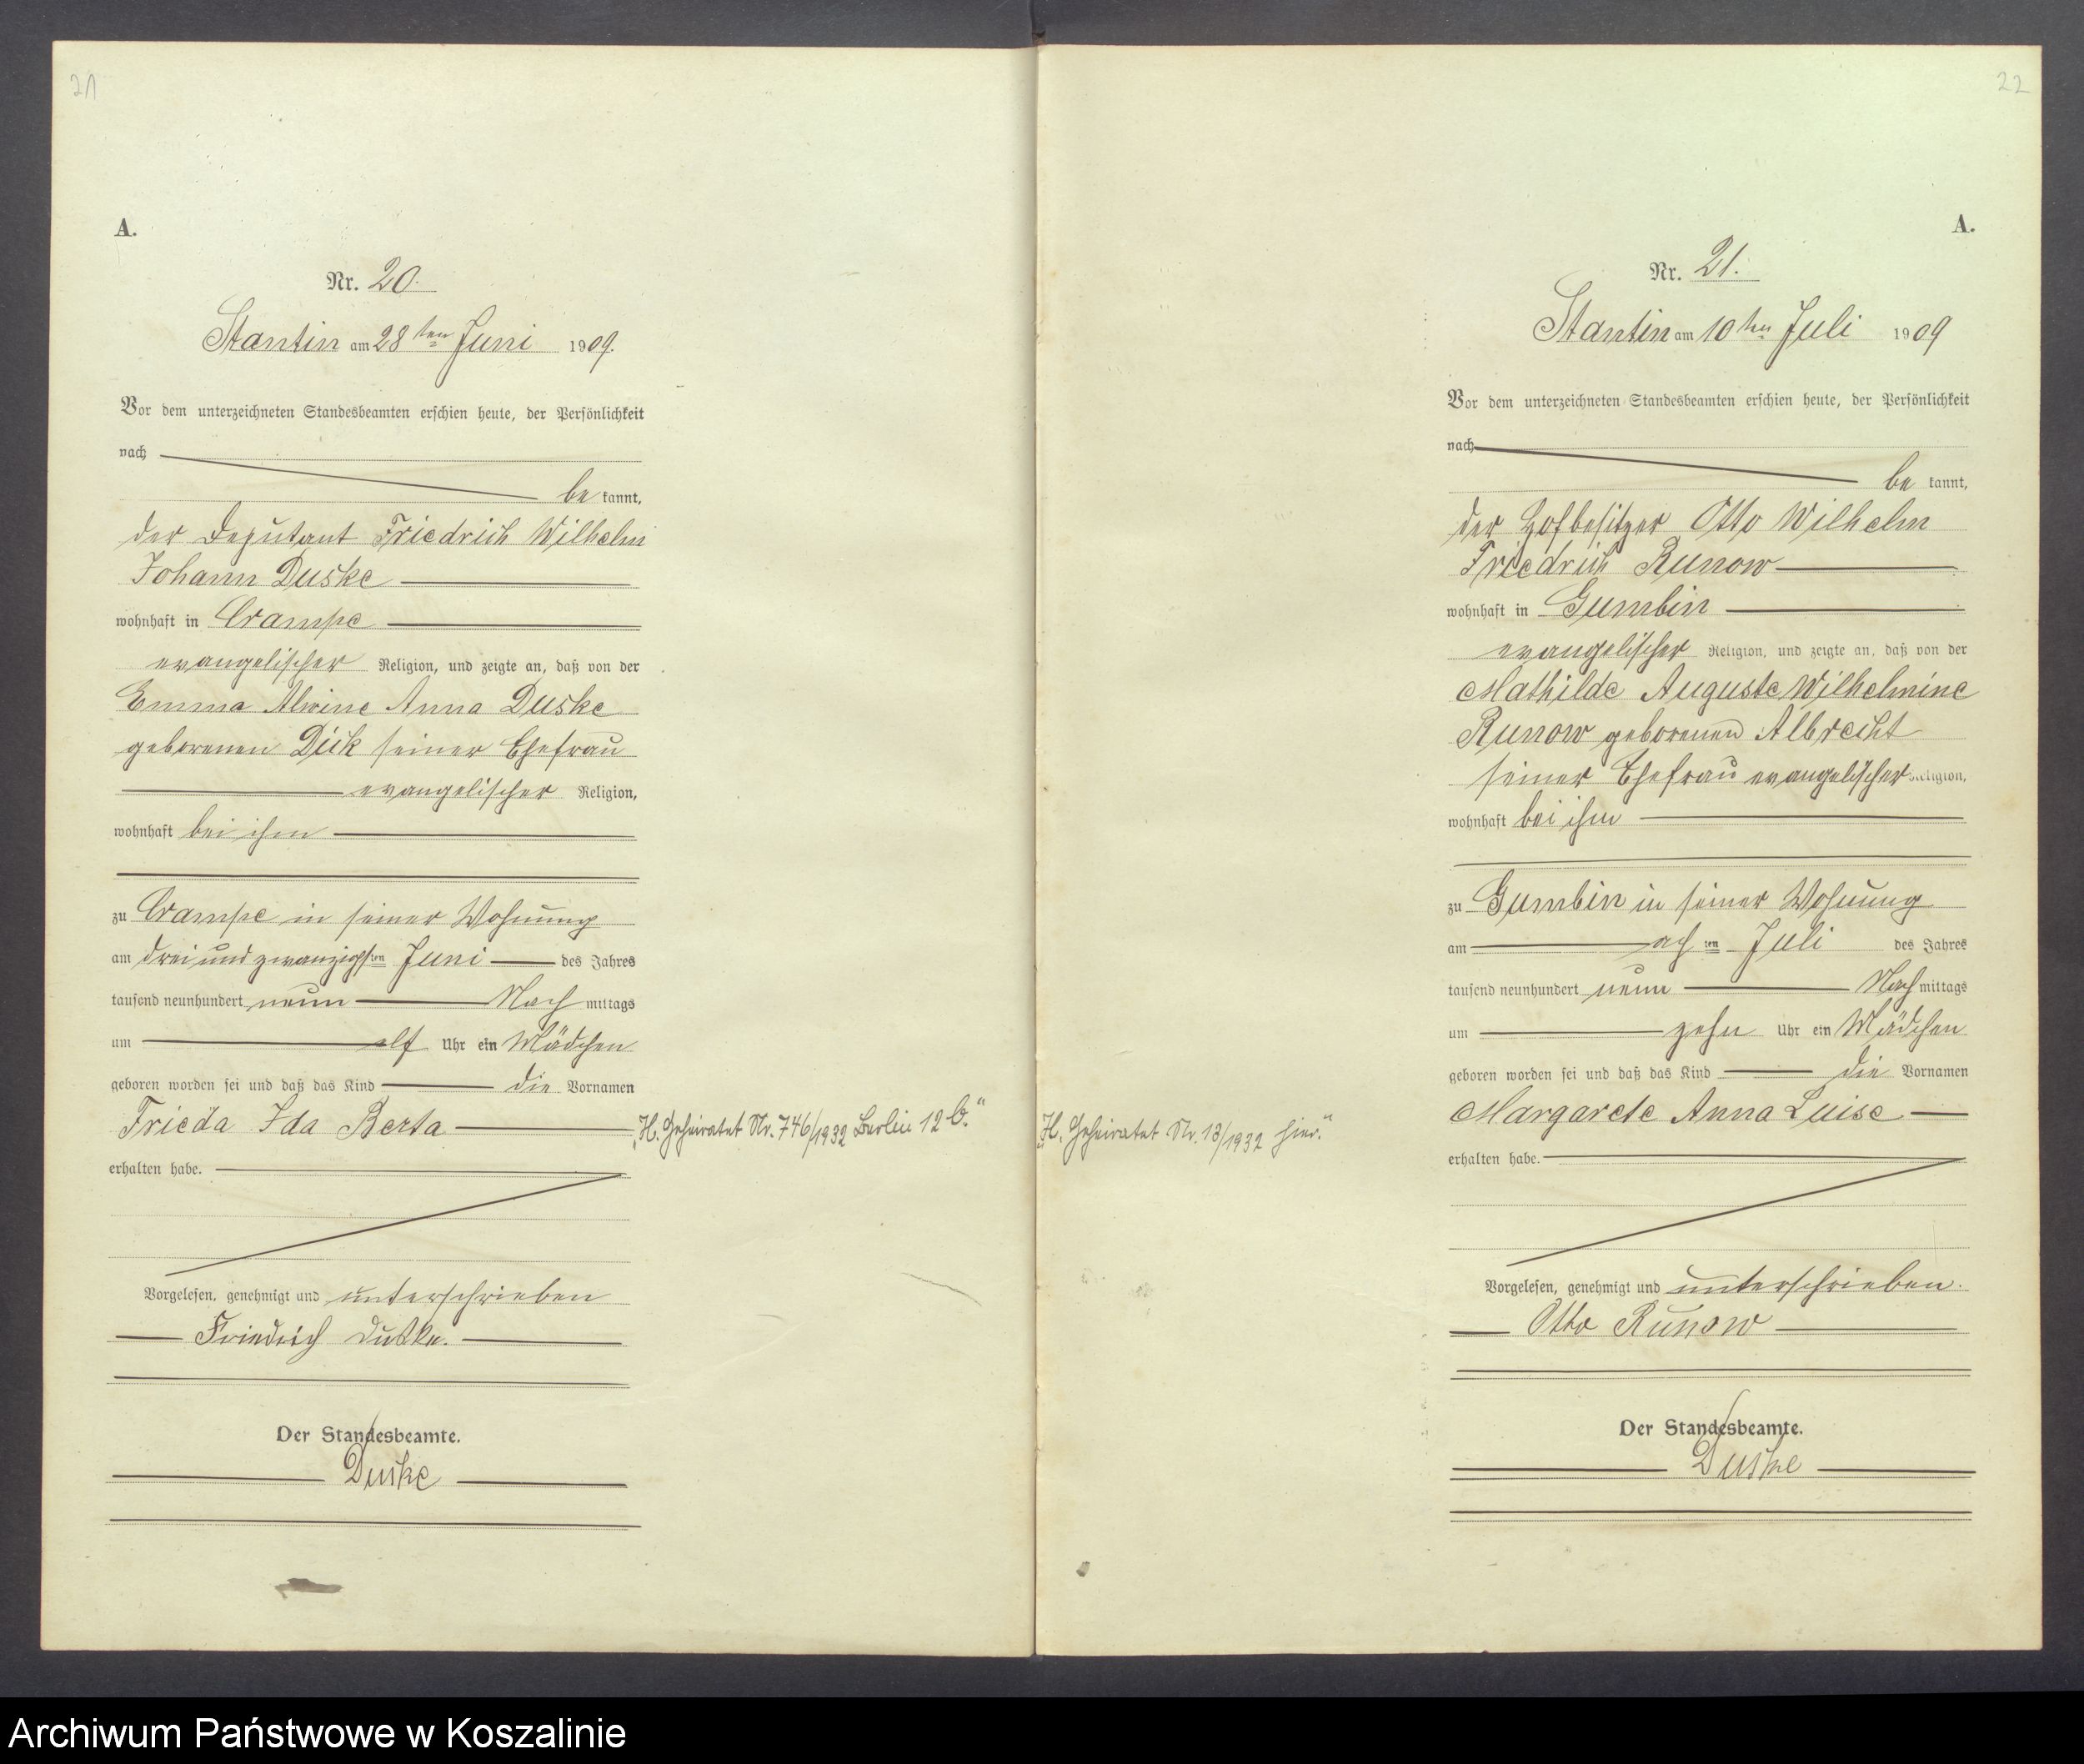 21
A.
Nr. 20.
Stantin am 28ten Juni 1909.
Vor dem unterzeichneten Standesbeamten erschien heute, der Persönlichkeit
nach
be kannt,
der Deputant Friedrich Wilhelm
Johann Duske
wohnhaft in Crampe
evangelischer Religion, und zeigte an, daß von der
Emma Alwine Anna Duske
geborenen Dick seiner Ehefrau
evangelischer Religion,
wohnhaft bei ihm
zu Crampe in seiner Wohnung
am drei und zwanzigsten Juni des Jahres
tausend neunhundert neun Nach mittags
um elf Uhr ein Mädchen
geboren worden sei und daß das Kind die Vornamen
Frieda Ida Berta
„H. Geheiratet Nr. 746/1932 Berlin 12 b.“
erhalten habe.
Vorgelesen, genehmigt und unterschrieben
Friedrich Duske.
Der Standesbeamte.
Duske
22
A.
Nr. 21.
Stantin am 10ten Juli 1909
Vor dem unterzeichneten Standesbeamten erschien heute, der Persönlichkeit
nach
be kannt,
der Hofbesitzer Otto Wilhelm
Friedrich Runow
wohnhaft in Gumbin
evangelischer Religion, und zeigte an, daß von der
Mathilde Auguste Wilhelmine
Runow geborenen Albrecht
seiner Ehefrau evangelischer Religion,
wohnhaft bei ihm
zu Gumbin in seiner Wohnung
am achten Juli des Jahres
tausend neunhundert neun Nach mittags
um zehn Uhr ein Mädchen
geboren worden sei und daß das Kind die Vornamen
Margarete Anna Luise
„H. Geheiratet Nr. 13/1932 hier.“
erhalten habe.
Vorgelesen, genehmigt und unterschrieben.
Otto Runow
Der Standesbeamte.
Duske
Archiwum Państwowe w Koszalinie